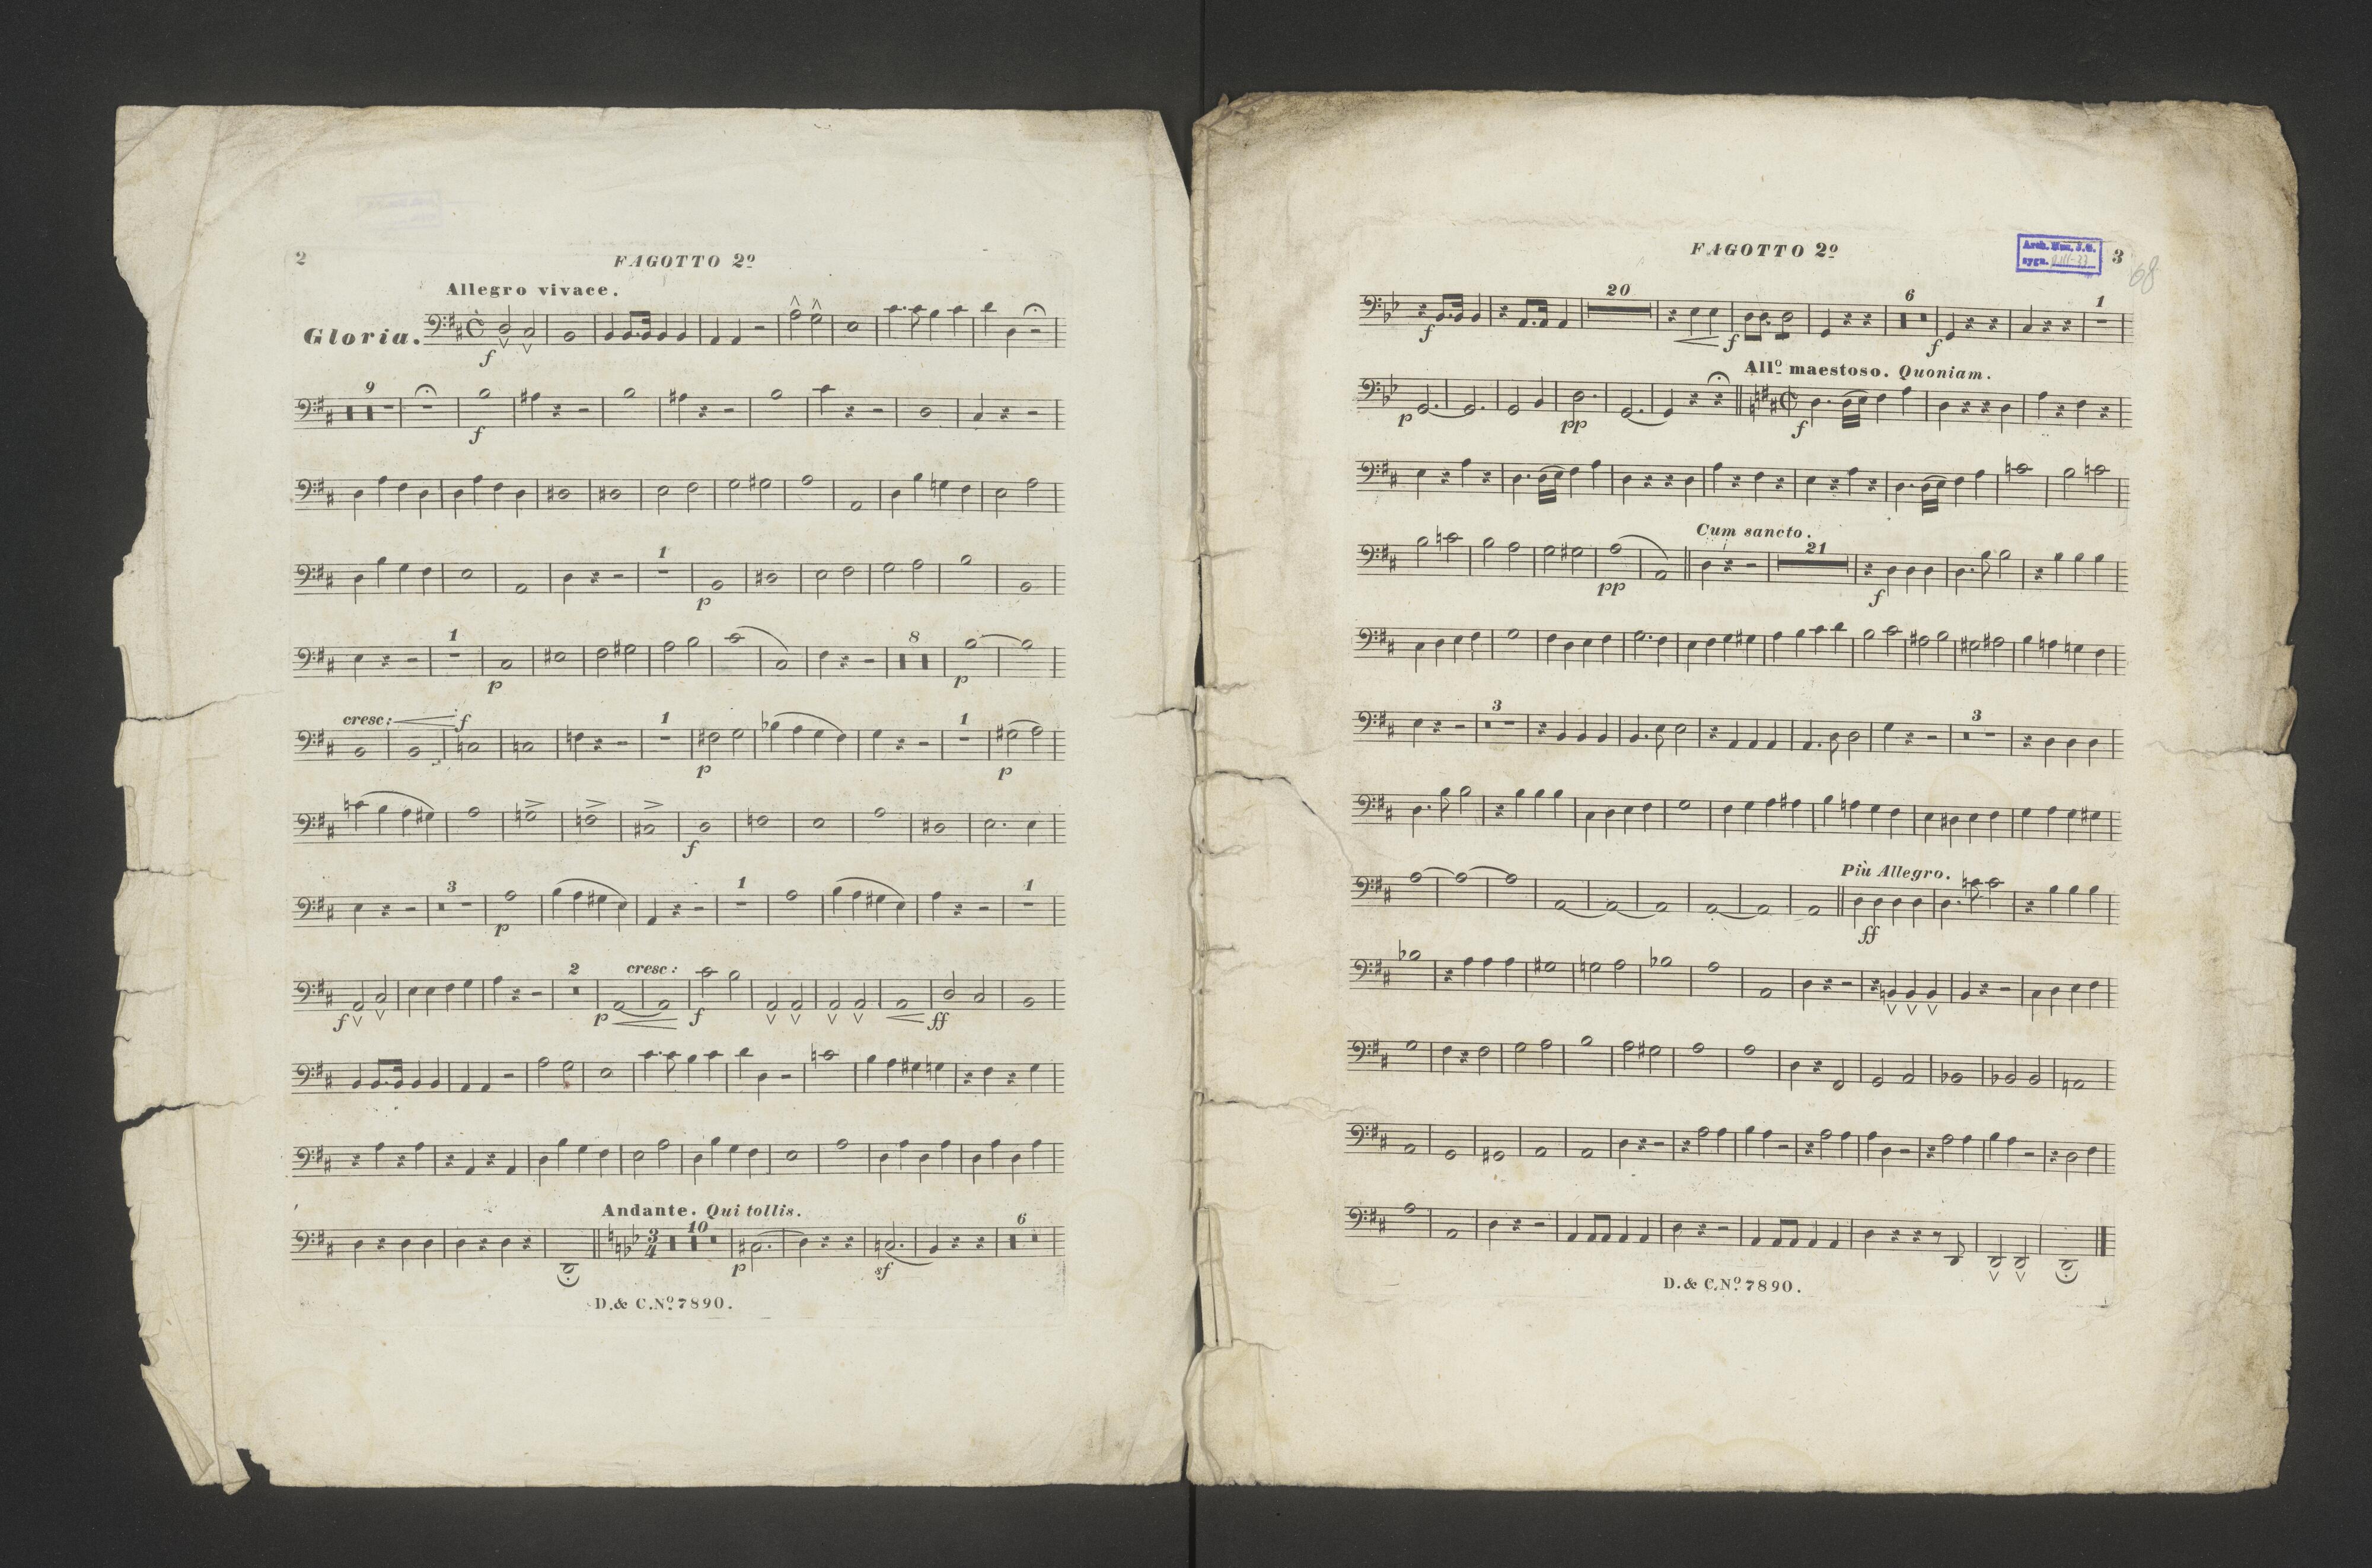 2
FAGOTTO 2º
Allegro vivace.
Gloria.
f
9
f
1
p
1
p
8
p
cresc: f
1
p
1
p
f
3
p
1
1
f
2
p
cresc:
f
ff
Andante. Qui tollis.
3/4
10
p
sf
6
D. & C. Nº 7890.
FAGOTTO 2º
Arch. Muz. J.G.
sygn.
3
68
f
20
f
6
f
1
Allº maestoso. Quoniam.
p
pp
f
Cum sancto.
pp
21
f
3
3
Più Allegro.
ff
D. & C. Nº 7890.